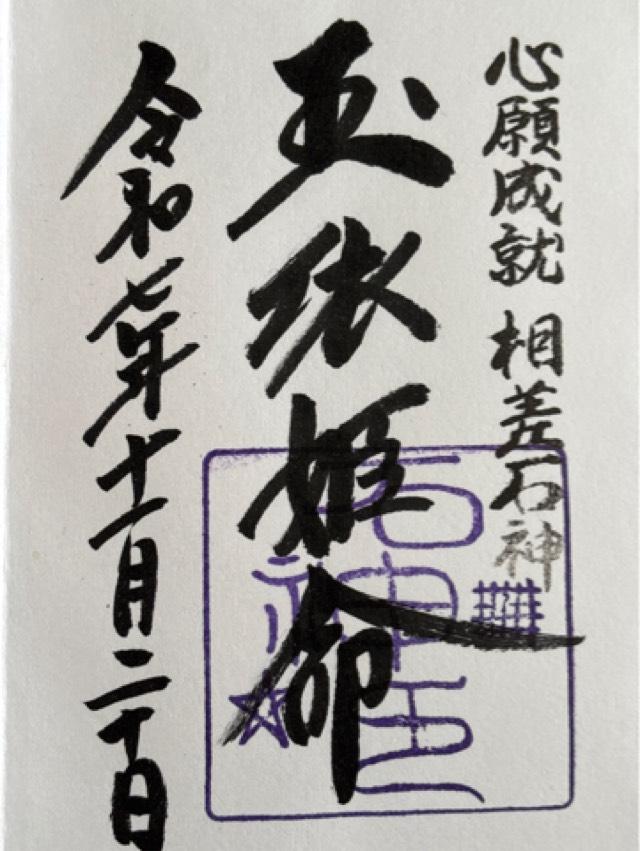 心願成就 相差石神
玉依姫命
令和七年十一月二十日
石神